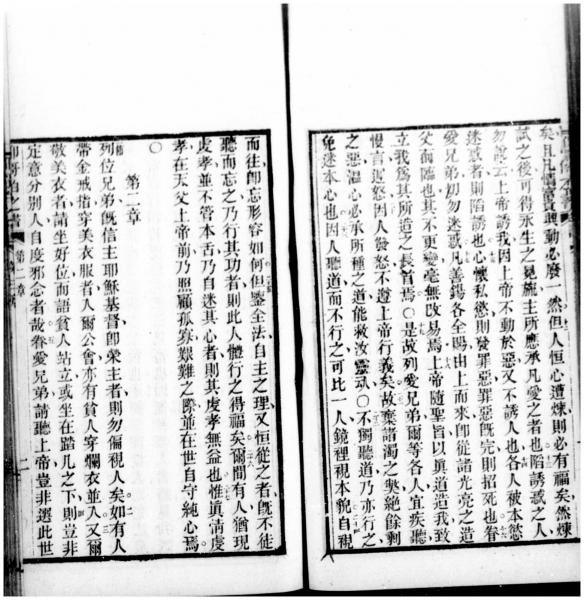 矣且凡僃富貴興動必廢一然但人恒心遭煉則必有福矣然煉
試之後可得永生之冕旒主所應承凡愛之者也陷誘惑之人
勿說云上帝誘我因上帝不動於惡又不誘人也各人被本慾
迷惑者則陷誘也心懷私慾則發罪惡罪惡旣完則招死也眷
愛兄弟切勿迷惑凡善錫各全賜由上而來卽從諸光亮之造
父而臨也其不更變毫無改易焉上帝隨聖旨以眞道造我致
立我爲其所造之長首焉○是故列愛兄弟爾等各人宜疾聽
慢言遲怒因人發怒不遵上帝行義矣故棄諸濁之與絶餘剩
之惡溫心必承所種之道能救汝靈魂○不獨聽道乃亦行之
免迷本心也因人聽道而不行之可比一人鏡裡視本貌自視
而往卽忘形容如何但鑒全法自主之理又恒從之者旣不徒
聽而忘之乃行其功者則此人體行之得福矣爾間有人猶現
虔孝並不管本舌乃自迷其心者則其虔孝無益也惟眞情虔
孝在天父上帝前乃照顧孤寡艱難之際並在世自守純心焉
第二章
列位兄弟旣信主耶穌基督卽榮主者則勿偏視人矣如有人
帶金戒指穿美衣服者入爾公會亦有貧人穿爛衣並入又爾
敬美衣者請坐好位而語貧人站立或坐在踏几之下則豈非
定意分別人自度邪念者哉眷愛兄弟請聽上帝豈非選此世
第二章
二